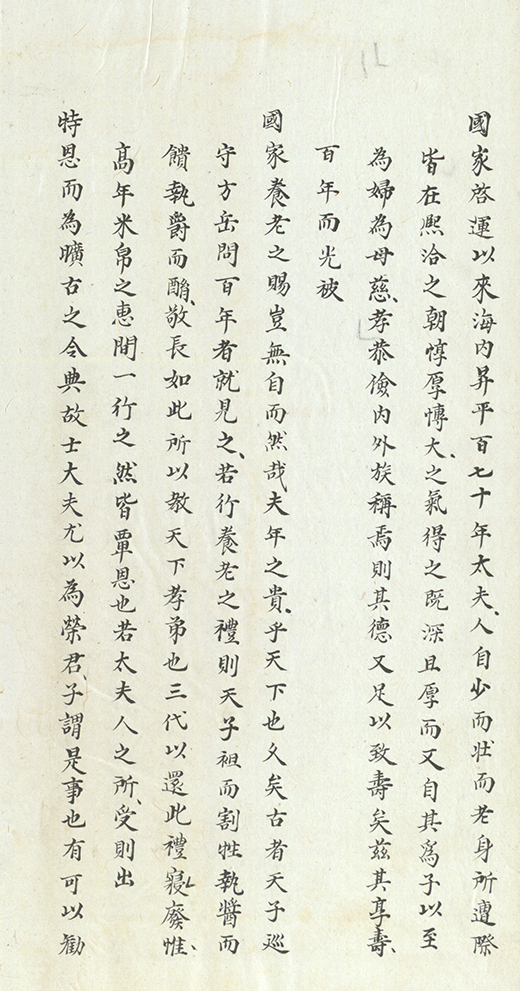 國家啓運以來海内昇平百七十年太夫人自少而壯而老身所遭際
皆在熈洽之朝惇厚慱大之氣得之既深且厚而又自其為子以至
為婦為母慈孝恭儉内外族稱焉則其德又足以致壽矣茲其享壽
百年而光被
國家養老之賜豈無自而然哉夫年之貴乎天下也久矣古者天子巡
守方岳問百年者就見之若行養老之禮則天子袒而割牲執醬而
饋執爵而酳敬長如此所以教天下孝弟也三代以還此禮寢廢惟
髙年米帛之惠間一行之然皆覃恩也若太夫人之所受則出
特恩而為曠古之令典故士大夫尤以為榮君子謂是事也有可以勸